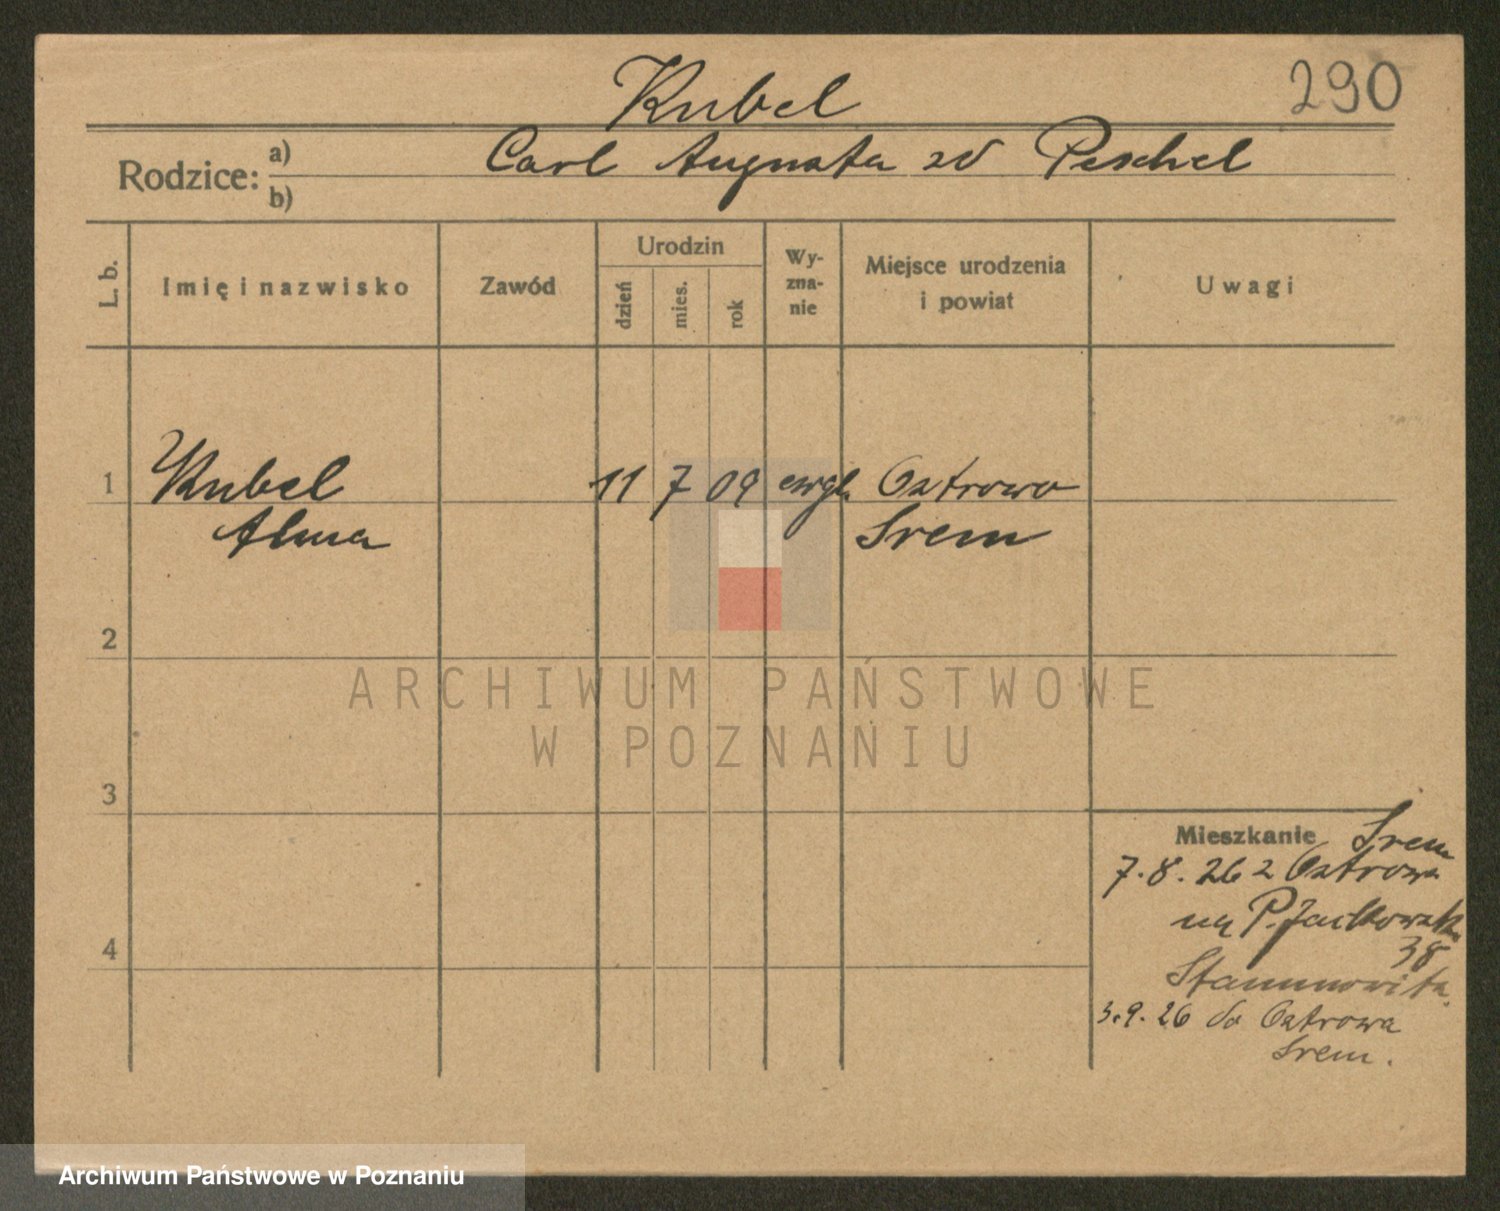 Kubel
290
Rodzice: a) Carl Augusta zd Peschel
b)
L. b.
Imię i nazwisko
Zawód
Urodzin
dzień
mies.
rok
Wy-
zna-
nie
Miejsce urodzenia
i powiat
Uwagi
1 Kubel 11 7 09 ewgl. Ostrowo
Alma Srem
2
3
4
Mieszkanie Srem
7.8.26 z Ostrowa
na
38
3.9.26 do Ostrowa
Srem.
ARCHIWUM PAŃSTWOWE
W POZNANIU
Archiwum Państwowe w Poznaniu